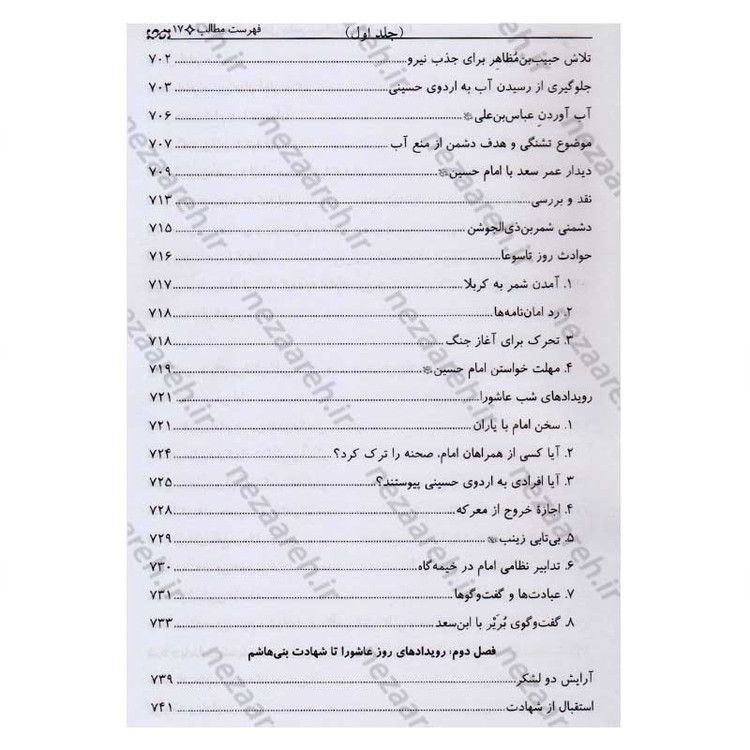 فهرست مطالب ❖ ۱۷
(جلد اول)
تلاش حبیب‌بن‌مُظاهِر برای جذب نیرو ۷۰۲
جلوگیری از رسیدن آب به اردوی حسینی ۷۰۳
آب آوردنِ عباس‌بن‌علی ۷۰۶
موضوع تشنگی و هدف دشمن از منع آب ۷۰۷
دیدار عمر سعد با امام حسین ۷۰۹
نقد و بررسی ۷۱۳
دشمنی شمربن‌ذی‌الجوشن ۷۱۵
حوادث روز تاسوعا ۷۱۶
۱. آمدن شمر به کربلا ۷۱۷
۲. رد امان‌نامه‌ها ۷۱۸
۳. تحرک برای آغاز جنگ ۷۱۸
۴. مهلت خواستن امام حسین ۷۱۹
رویدادهای شب عاشورا ۷۲۱
۱. سخن امام با یاران ۷۲۱
۲. آیا کسی از همراهان امام، صحنه را ترک کرد؟ ۷۲۴
۳. آیا افرادی به اردوی حسینی پیوستند؟ ۷۲۵
۴. اجازهٔ خروج از معرکه ۷۲۸
۵. بی‌تابی زینب ۷۲۹
۶. تدابیر نظامی امام در خیمه‌گاه ۷۳۰
۷. عبادت‌ها و گفت‌وگوها ۷۳۱
۸. گفت‌وگوی بُرَیْر با ابن‌سعد ۷۳۳
فصل دوم: رویدادهای روز عاشورا تا شهادت بنی‌هاشم
آرایش دو لشکر ۷۳۹
استقبال از شهادت ۷۴۱
nezaareh.ir